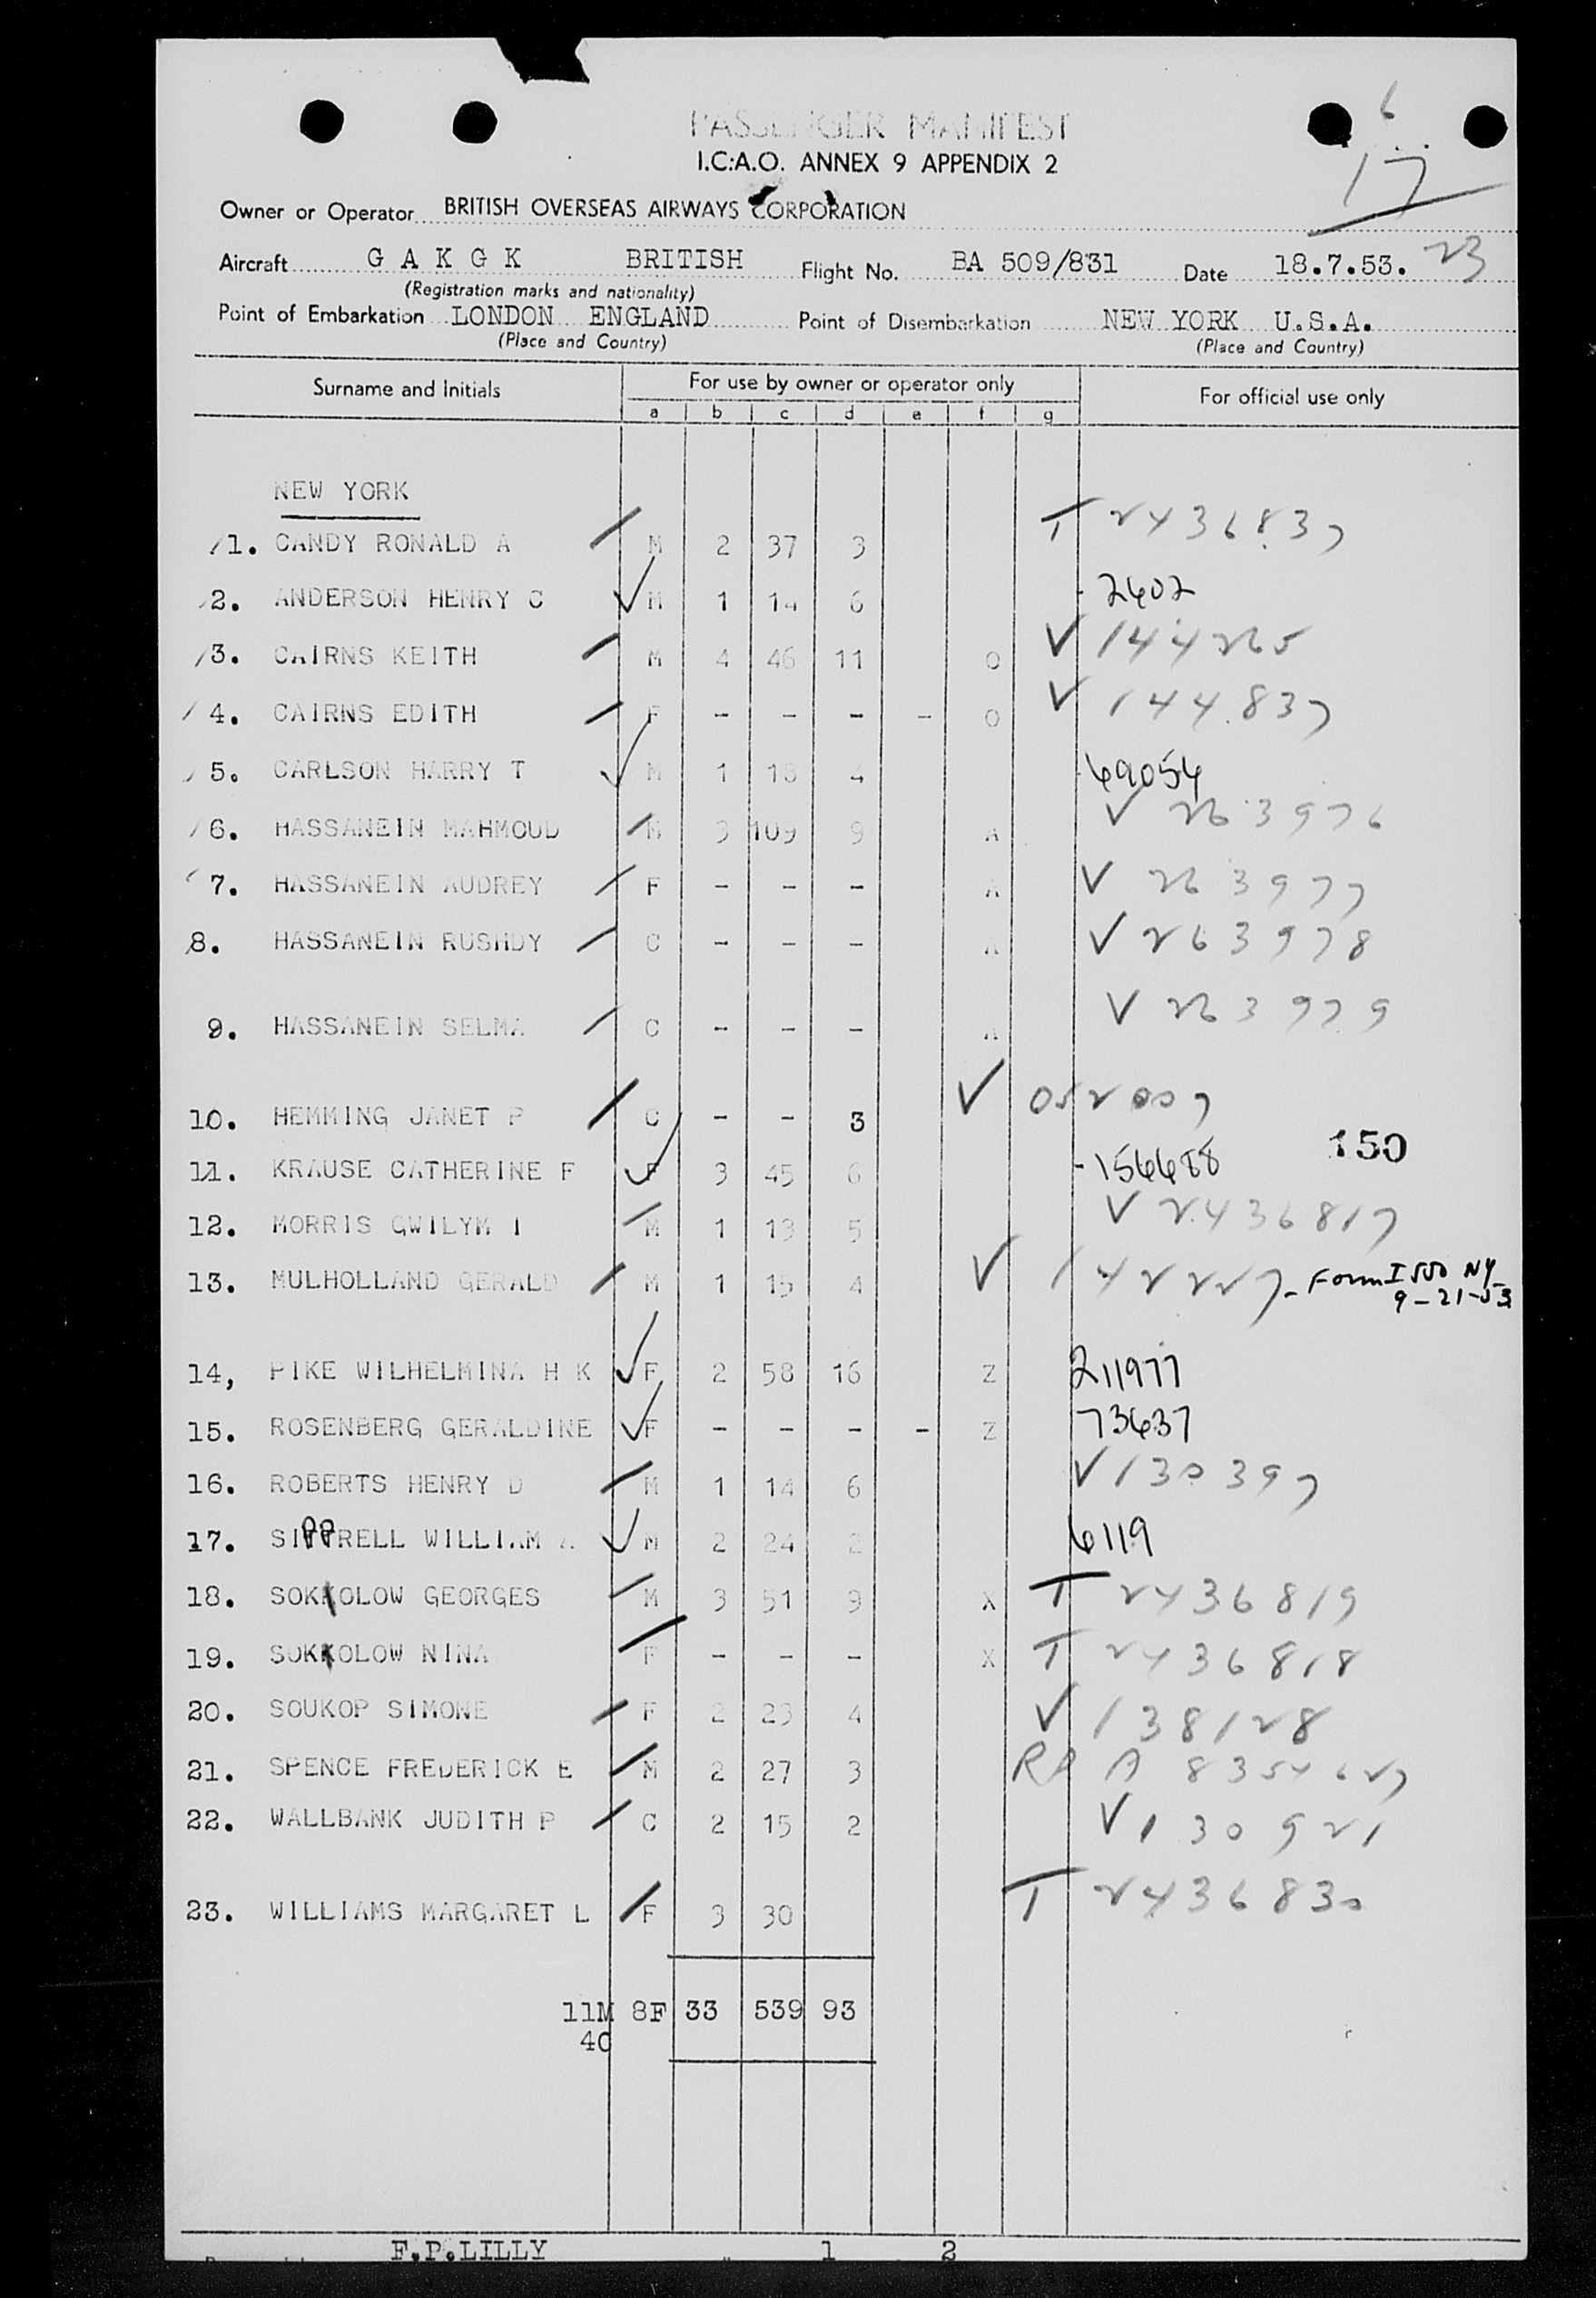 6
PASSENGER MANIFEST
I.C.A.O. ANNEX 9 APPENDIX 2
17
Owner or Operator BRITISH OVERSEAS AIRWAYS CORPORATION
Aircraft G A K G K BRITISH Flight No. BA 509/831 Date 18.7.53. 23
(Registration marks and nationality)
Point of Embarkation LONDON ENGLAND Point of Disembarkation NEW YORK U.S.A.
(Place and Country) (Place and Country)
Surname and Initials For use by owner or operator only For official use only
a b c d e f g
NEW YORK
1. CANDY RONALD A M 2 37 3 T 2436837
2. ANDERSON HENRY C M 1 14 6 2602
3. CAIRNS KEITH M 4 46 11 O V 144265
4. CAIRNS EDITH F - - - - O V 144837
5. CARLSON HARRY T M 1 18 4 69056
6. HASSANEIN MAHMOUD M 3 109 9 A V 263976
7. HASSANEIN AUDREY F - - - A V 263977
8. HASSANEIN RUSHDY C - - - A V 263978
9. HASSANEIN SELMA C - - - A V 263979
10. HEMMING JANET P C - - 3 V 052007
150
11. KRAUSE CATHERINE F F 3 45 6 156688
12. MORRIS GWILYM I M 1 13 5 V 2436817
13. MULHOLLAND GERALD M 1 15 4 V 142227 - Form I 550 NY
9-21-53
14, PIKE WILHELMINA H K F 2 58 16 Z 211977
15. ROSENBERG GERALDINE F - - - - Z 73637
16. ROBERTS HENRY D M 1 14 6 V 130397
17. SIPPRELL WILLIAM A M 2 24 2 6119
18. SOKOLOW GEORGES M 3 51 9 X T 2436819
19. SOKOLOW NINA F - - - X T 2436818
20. SOUKOP SIMONE F 2 23 4 V 138128
21. SPENCE FREDERICK E M 2 27 3 RP A 8354627
22. WALLBANK JUDITH P C 2 15 2 V 130921
23. WILLIAMS MARGARET L F 3 30 T 2436830
11M 8F 33 539 93
4C
F.P.LILLY 1 2